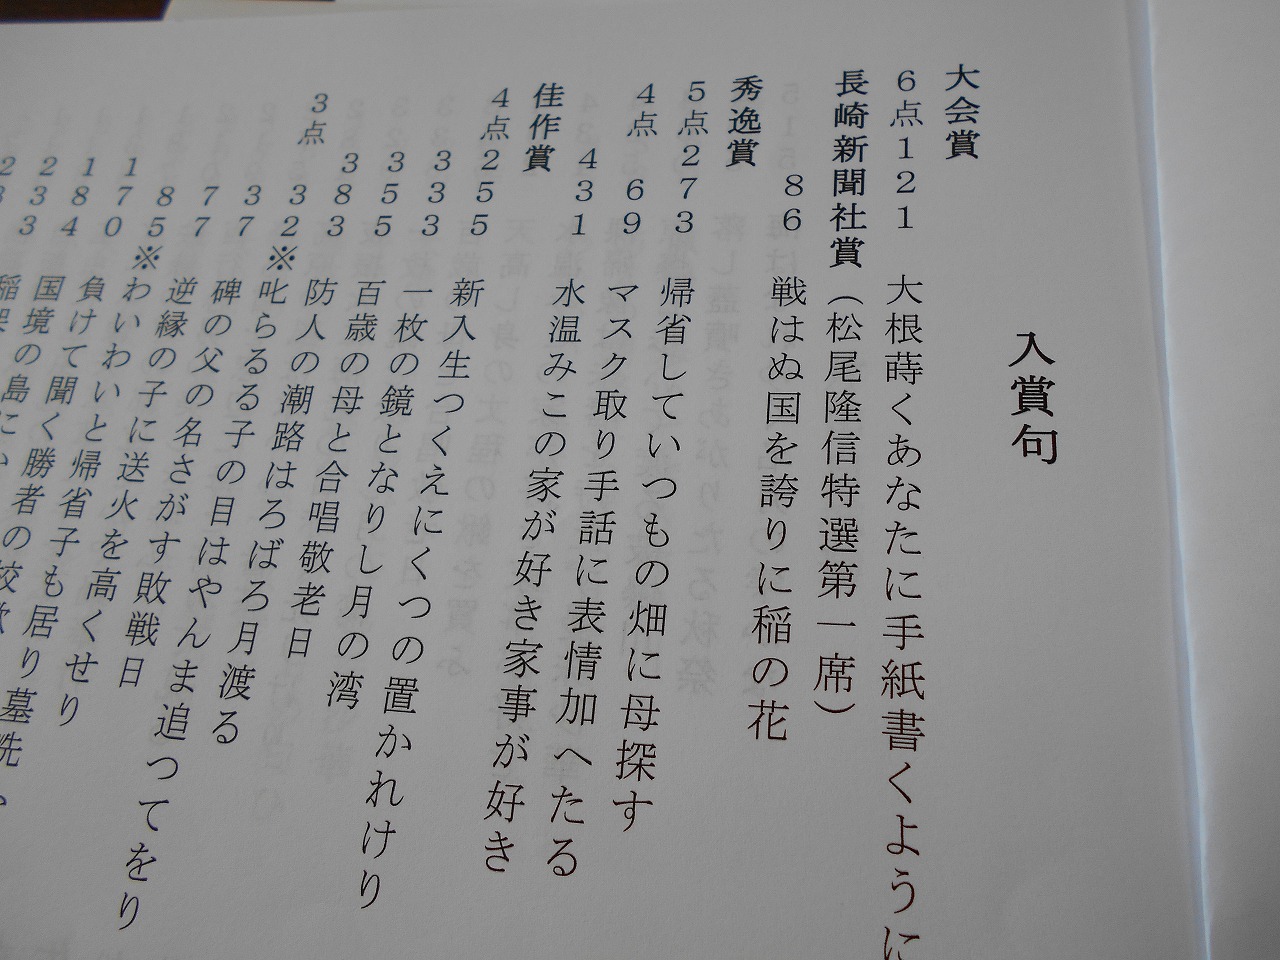 入賞句
大会賞
6点121 大根蒔くあなたに手紙書くように
長崎新聞社賞（松尾隆信特選第一席）
86 戦はぬ国を誇りに稲の花
秀逸賞
5点273 帰省していつもの畑に母探す
4点 69 マスク取り手話に表情加へたる
431 水温みこの家が好き家事が好き
佳作賞
4点255 新入生つくえにくつの置かれけり
333 一枚の鏡となりし月の湾
355 百歳の母と合唱敬老日
383 防人の潮路はろばろ月渡る
3点 32※叱らるる子の目はやんま追つてをり
37 碑の父の名さがす敗戦日
77 逆縁の子に送火を高くせり
85※わいわいと帰省子も居り墓洗ふ
170 負けて聞く勝者の校歌
184 国境の島に
233 稲架